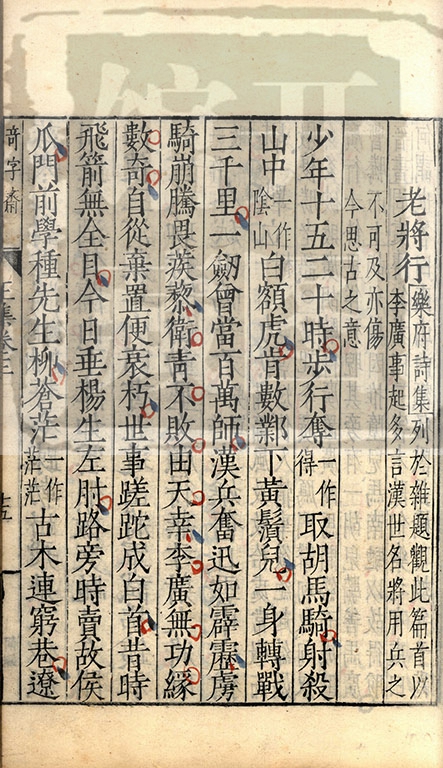 老將行 樂府詩集列於雜題觀此篇首以
李廣事起多言漢世名將用兵之
不可及亦傷
今思古之意
少年十五二十時步行奪一作得取胡馬騎射殺
山中一作陰山白額虎肯數鄴下黃鬚兒一身轉戰
三千里一劒曾當百萬師漢兵奮迅如霹靂虜
騎崩騰畏蒺藜衛青不敗由天幸李廣無功緣
數奇自從棄置便衰朽世事蹉跎成白首昔時
飛箭無全目今日垂楊生左肘路旁時賣故侯
瓜門前學種先生柳蒼茫一作茫茫古木連窮巷遼
奇字齋
王集卷三
十五